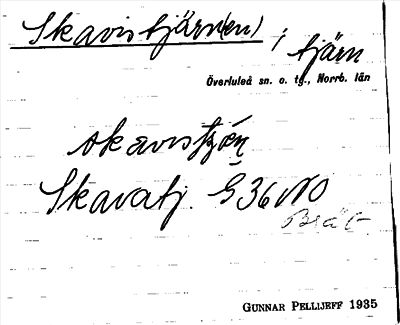 Skavistjärn(en) ; tjärn
Överluleå sn. o. tg., Norrb. län
skavistjǫ́n
Skavatj. G 36 NO
GUNNAR PELLIJEFF 1935